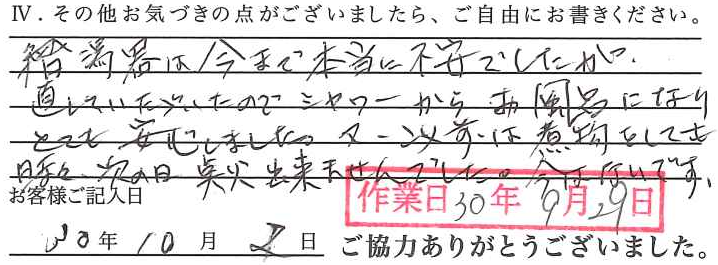 Ⅳ.その他お気づきの点がございましたら、ご自由にお書きください。
給湯器は今まで本当に不安でしたが、
直していただいたのでシャワーから お風呂になり
とても 安心しました。又、以前は 煮物をしても
時々、次の日 点火 出来ませんでした。今はないです。
お客様ご記入日
作業日30年 9月29日
30年 10月 2日 ご協力ありがとうございました。